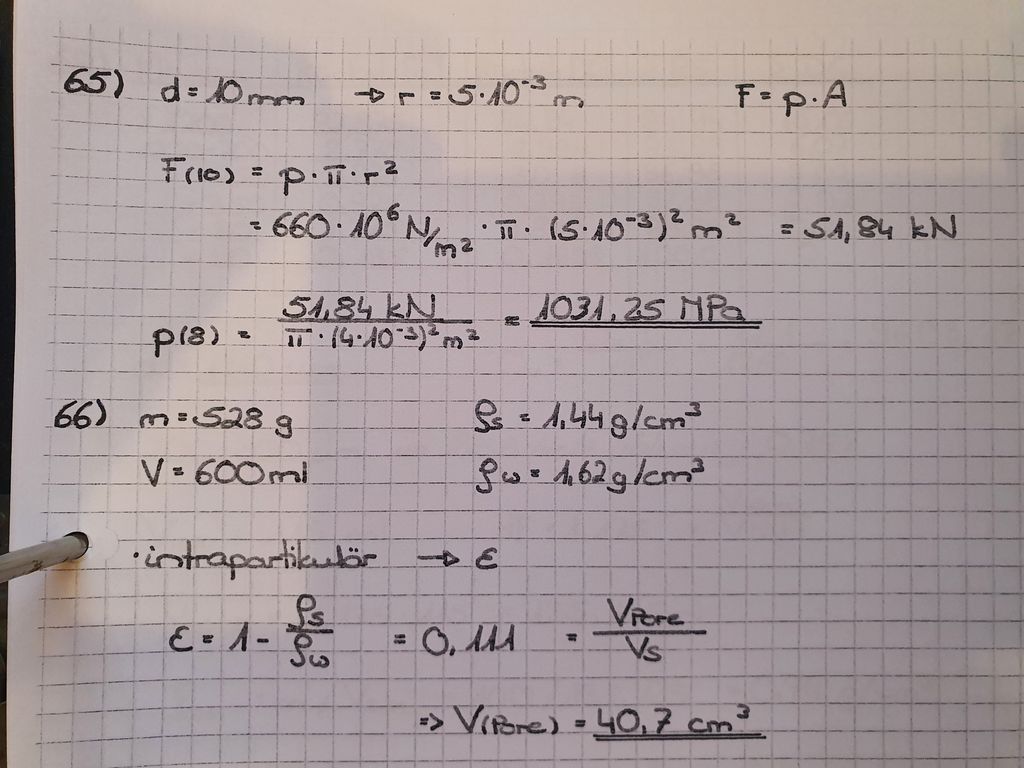 65) d = 10 mm → r = 5·10⁻³ m F = p·A
F(10) = p·π·r²
= 660·10⁶ N/m² · π · (5·10⁻³)² m² = 51,84 kN
p(8) = 51,84 kN / π·(4·10⁻³)² m² = 1031,25 MPa
66) m = 528 g ρs = 1,44 g/cm³
V = 600 ml ρω = 1,62 g/cm³
·intrapartikulär → ε
ε = 1 - ρs/ρω = 0,111 = VPore/Vs
=> V(Pore) = 40,7 cm³